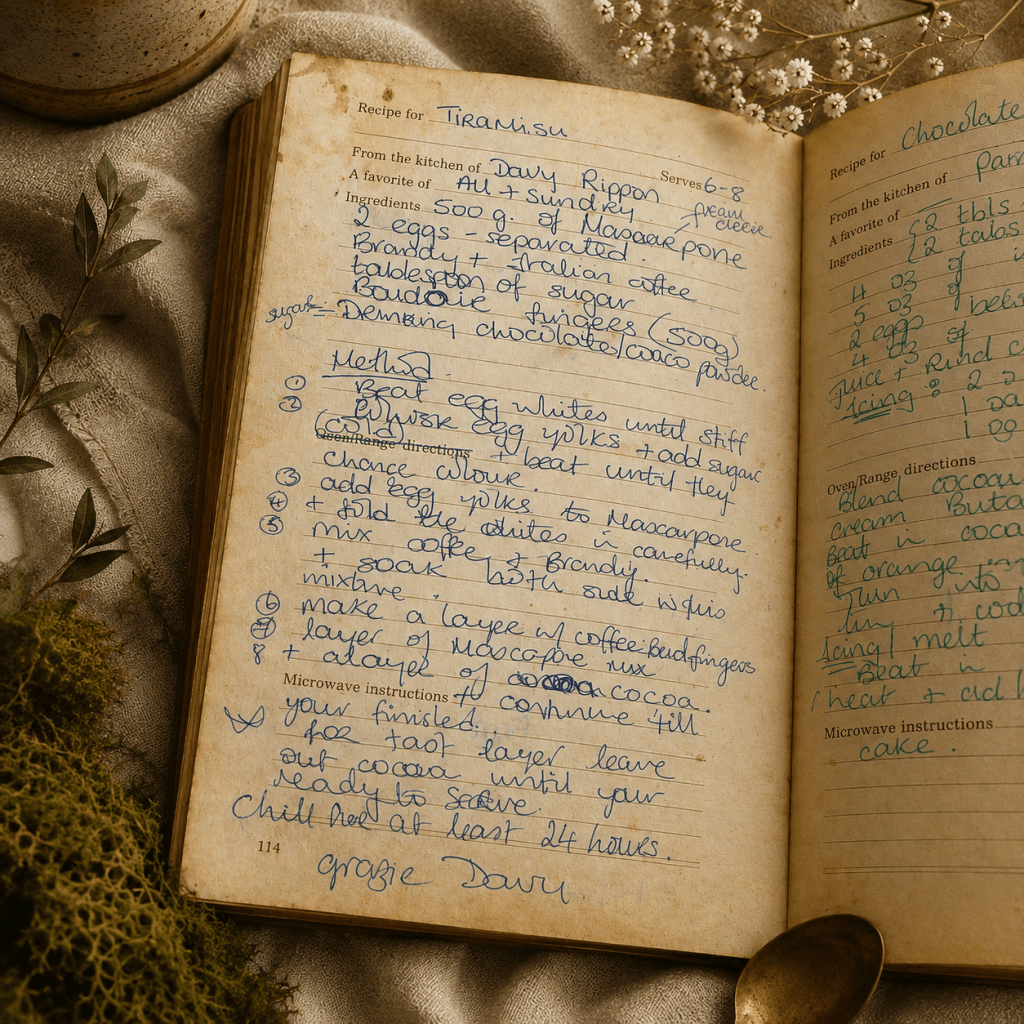 Recipe for Tiramisu
From the kitchen of Davy Rippon Serves 6-8
A favorite of All + Sundry
cream cheese
Ingredients 500 g. of Mascarpone
2 eggs - separated.
Brandy + Italian coffee
tablespoon of sugar
Boudoir fingers (500g)
sugar - Drinking chocolate/coaco powder.
Method.
① Beat egg whites until stiff
② Whisk egg yolks + add sugar
(cold)
Oven/Range directions + beat until they
change colour.
③ add egg yolks to Mascarpone
④ + fold the whites in carefully.
⑤ mix coffee + Brandy.
+ soak both side in this
mixture.
⑥ make a layer w/ coffee Boudfingers
⑦ layer of Mascarpone mix
8 + a layer of cocoa.
Microwave instructions + continue till
your finished.
for last layer leave
out cocoa until your
ready to serve.
Chill for at least 24 hours.
114
grazie Davy.
Recipe for Chocolate
From the kitchen of
A favorite of
Ingredients 2 tbls
2 tabs
4 oz of
5 oz of
2 eggs
4 oz of
Juice + Rind
Icing : 2
1
1
Oven/Range directions
Blend cocoa
cream Butt
Beat in cocoa
of orange
Turn into
tin +
Icing / melt
Beat in
heat + add
Microwave instructions
cake.